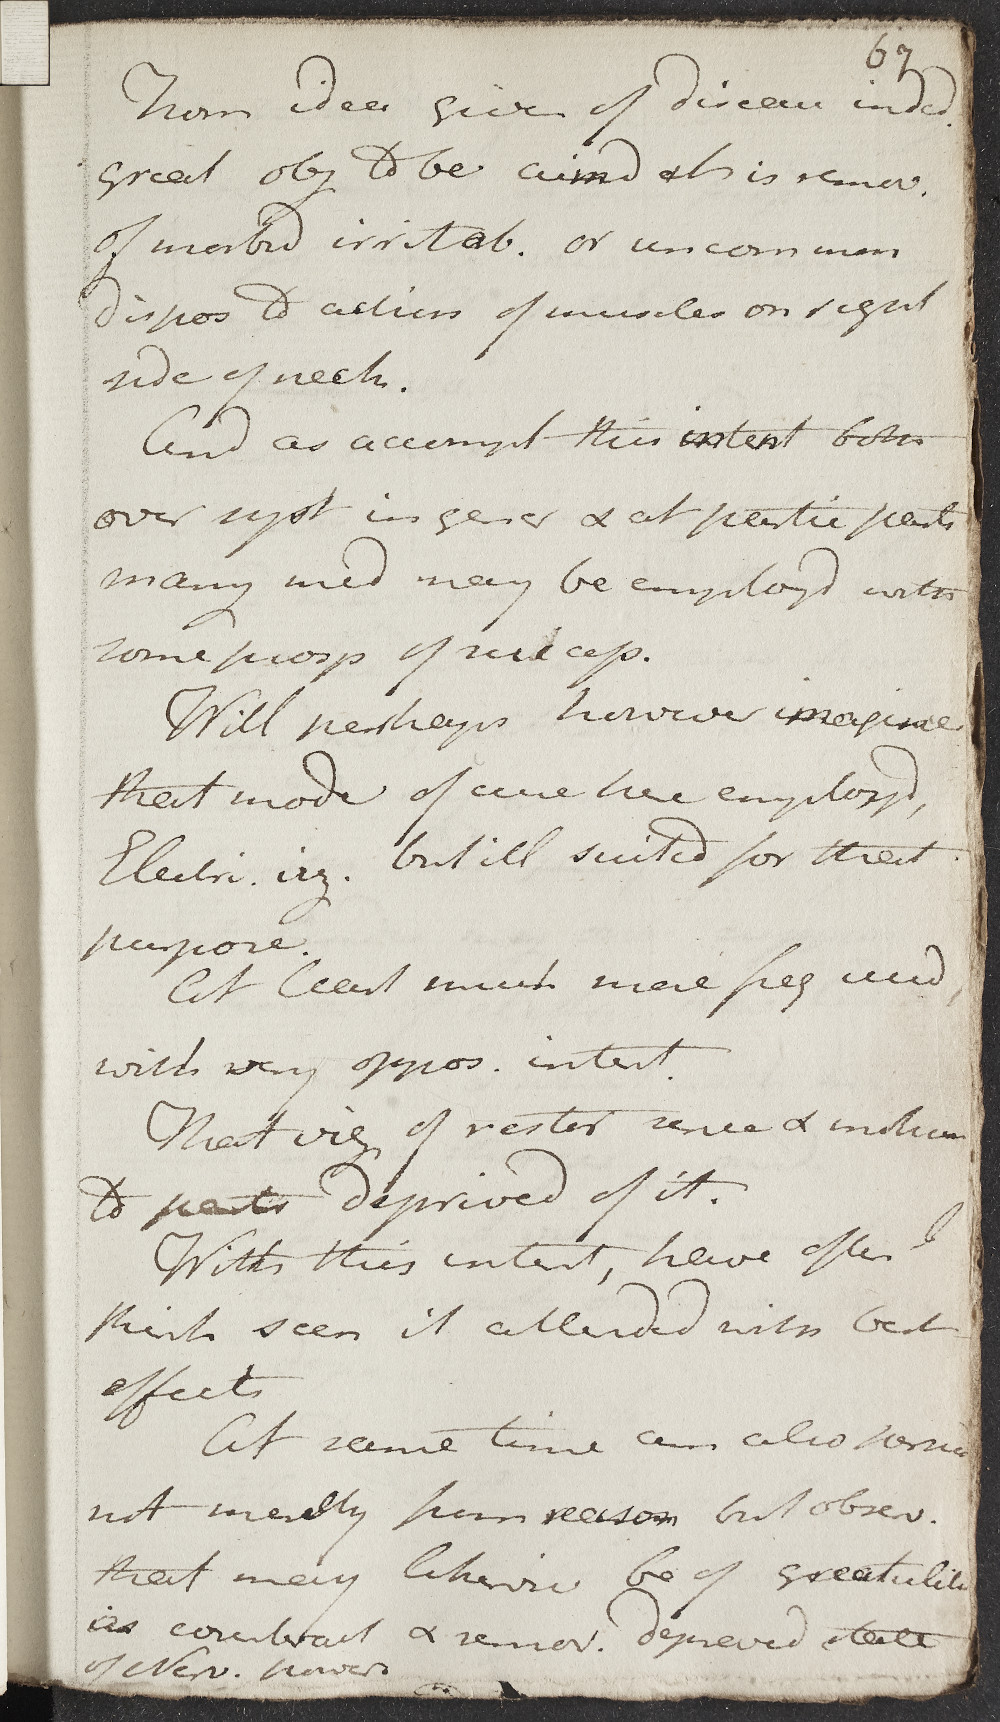 67
From idea given of disease inded.
great obj to be aimd at is remov.
of morbid irritab. or uncommon
dispos to action of muscles on right
side of neck.
And as accompl this intent both
over syst in gener & at partic parts
many med may be employd with
some prosp of success.
Will perhaps however imagine
that mode of cure here employd,
Electri. viz. but ill suited for that
purpose.
At least much more freq used,
with very oppos. intent.
That viz of restor sense & motion
to parts deprived of it.
With this intent, have often I
think seen it attended with best
effects
At same time am also
not merely from reason but observ.
that may likewise be of great utility
in counteract & remov. depraved state
of Nerv. power